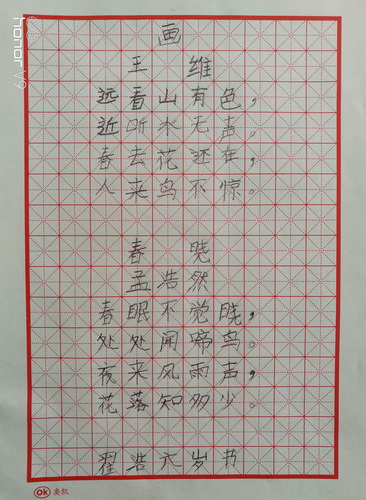 画
王维
远看山有色，
近听水无声。
春去花还在，
人来鸟不惊。
春晓
孟浩然
春眠不觉晓，
处处闻啼鸟。
夜来风雨声，
花落知多少。
翟浩六岁书
ok 奥凯
honor V9